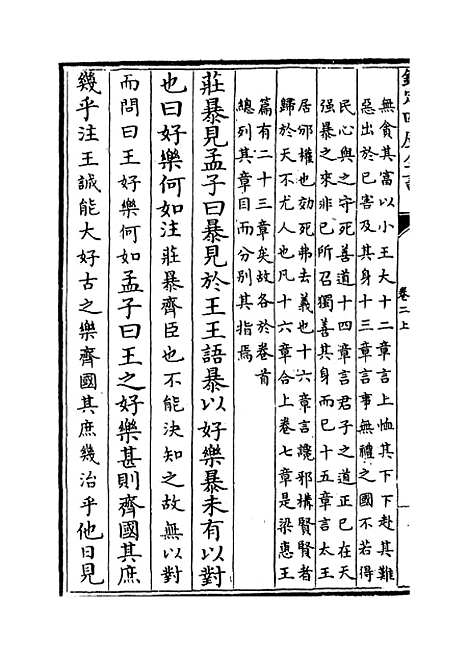 欽定四庫全書
卷二上
無貪其富以小王大十二章言上恤其下下赴其難
惡出於已害及其身十三章言事無禮之國不若得
民心與之守死善道十四章言君子之道正已在天
强暴之來非已所召獨善其身而已十五章言太王
居邠權也効死弗去義也十六章言讒邪構賢賢者
歸於天不尤人也凡十六章合上卷七章是梁惠王
篇有二十三章矣故各於卷首
總列其章目而分别其指焉
莊暴見孟子曰暴見於王王語暴以好樂暴未有以對
也曰好樂何如注莊暴齊臣也不能決知之故無以對
而問曰王好樂何如孟子曰王之好樂甚則齊國其庶
幾乎注王誠能大好古之樂齊國其庶幾治乎他日見